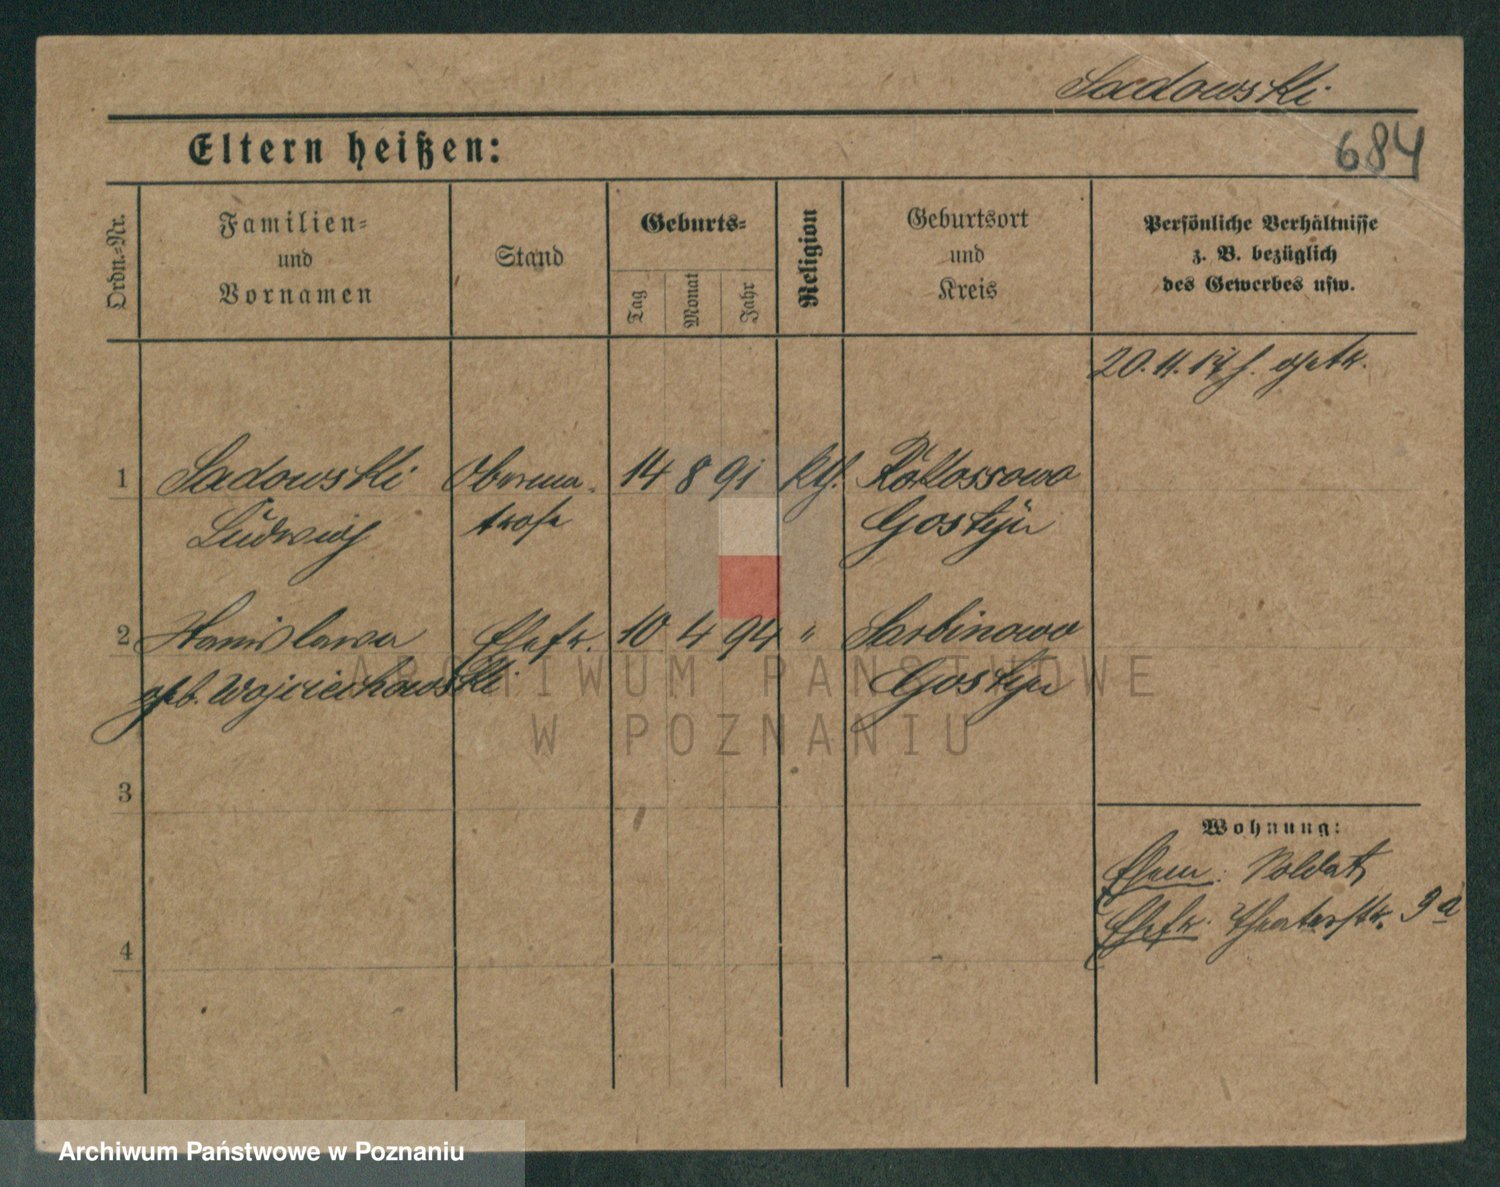 Sadowski
684
Eltern heißen:
Ordn.-Nr.
Familien-
und
Vornamen
Stand
Geburts-
Tag
Monat
Jahr
Religion
Geburtsort
und
Kreis
Persönliche Verhältnisse
z. B. bezüglich
des Gewerbes usw.
20.11.17
1 Sadowski Oberma- 14 8 91 kth. Rokossowo
Ludwig trose Gostyn
2 Stanislawa Ehefr. 10 4 94 " Sarbinowo
geb. Wojciechowski Gostyn
3
4
Wohnung:
Ehem: Soldat
Ehefr. Theaterstr. 9a
ARCHIWUM PAŃSTWOWE
W POZNANIU
Archiwum Państwowe w Poznaniu